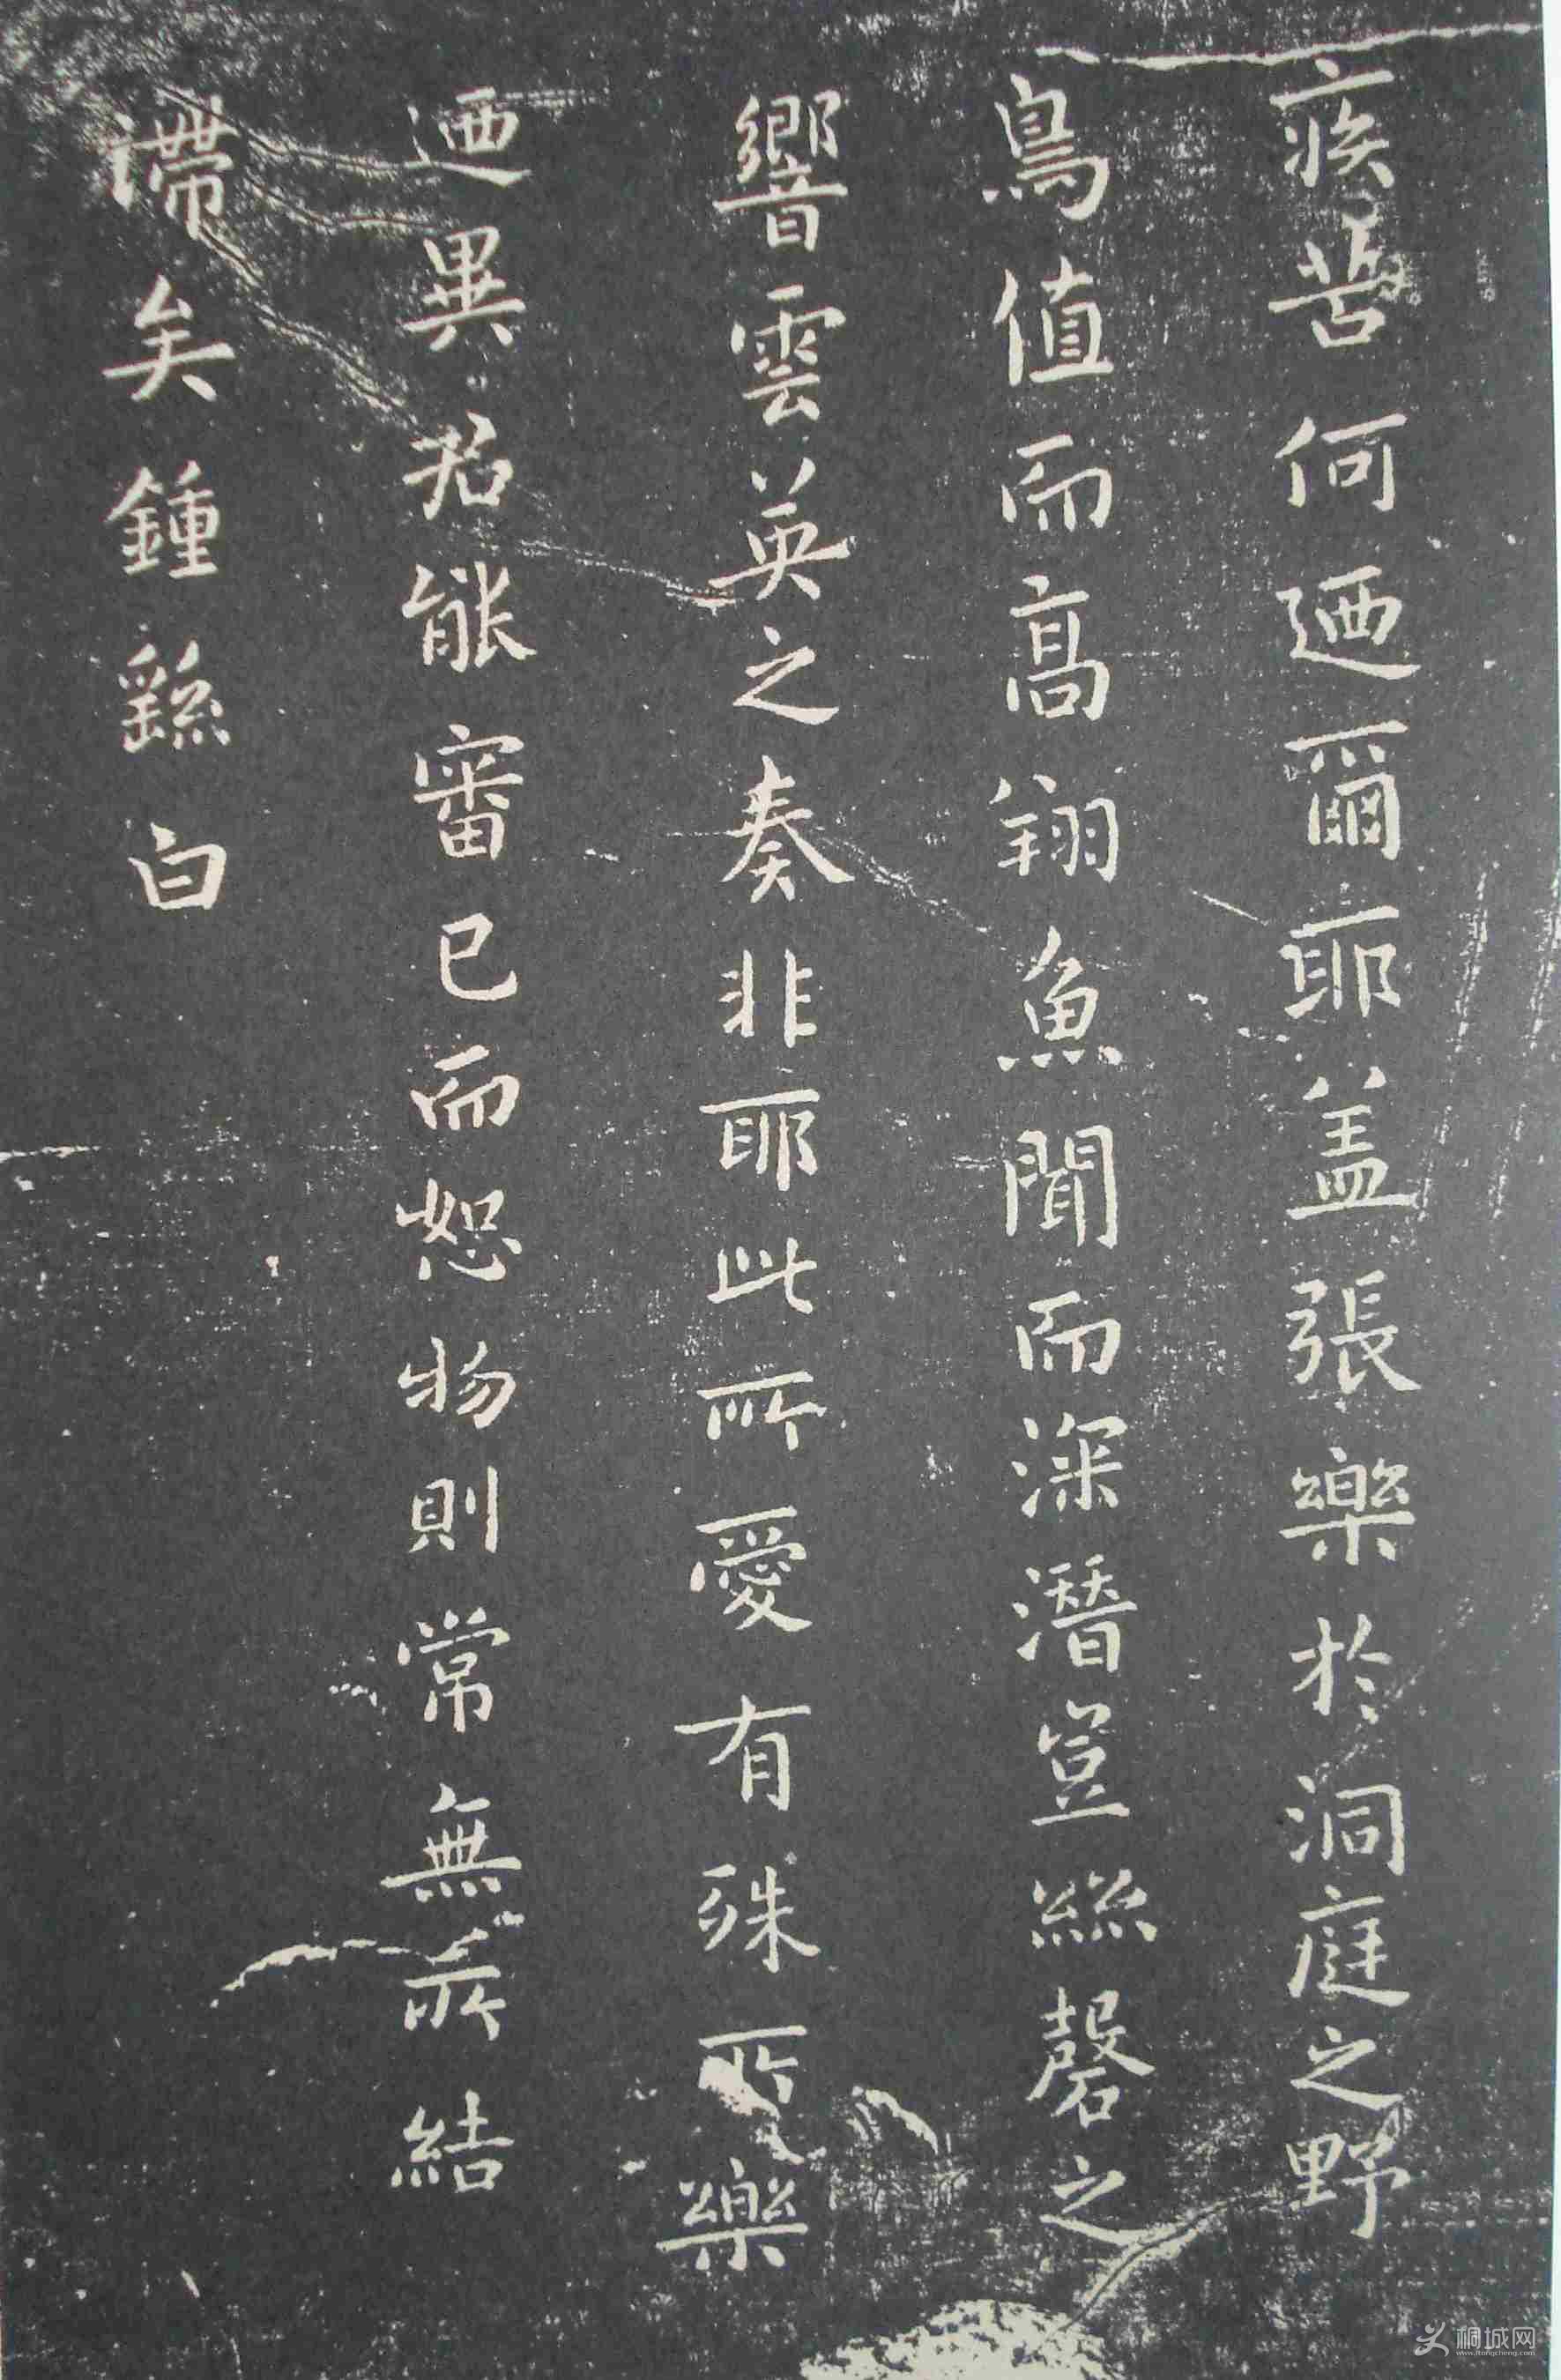 疾苦何迺爾耶蓋張樂於洞庭之野
鳥值而高翔魚聞而深潛豈絲磬之
響雲英之奏非耶此所愛有殊所樂
迺異君能審己而恕物則常無所結
滯矣鍾繇白
桐城网
www.itongcheng.com